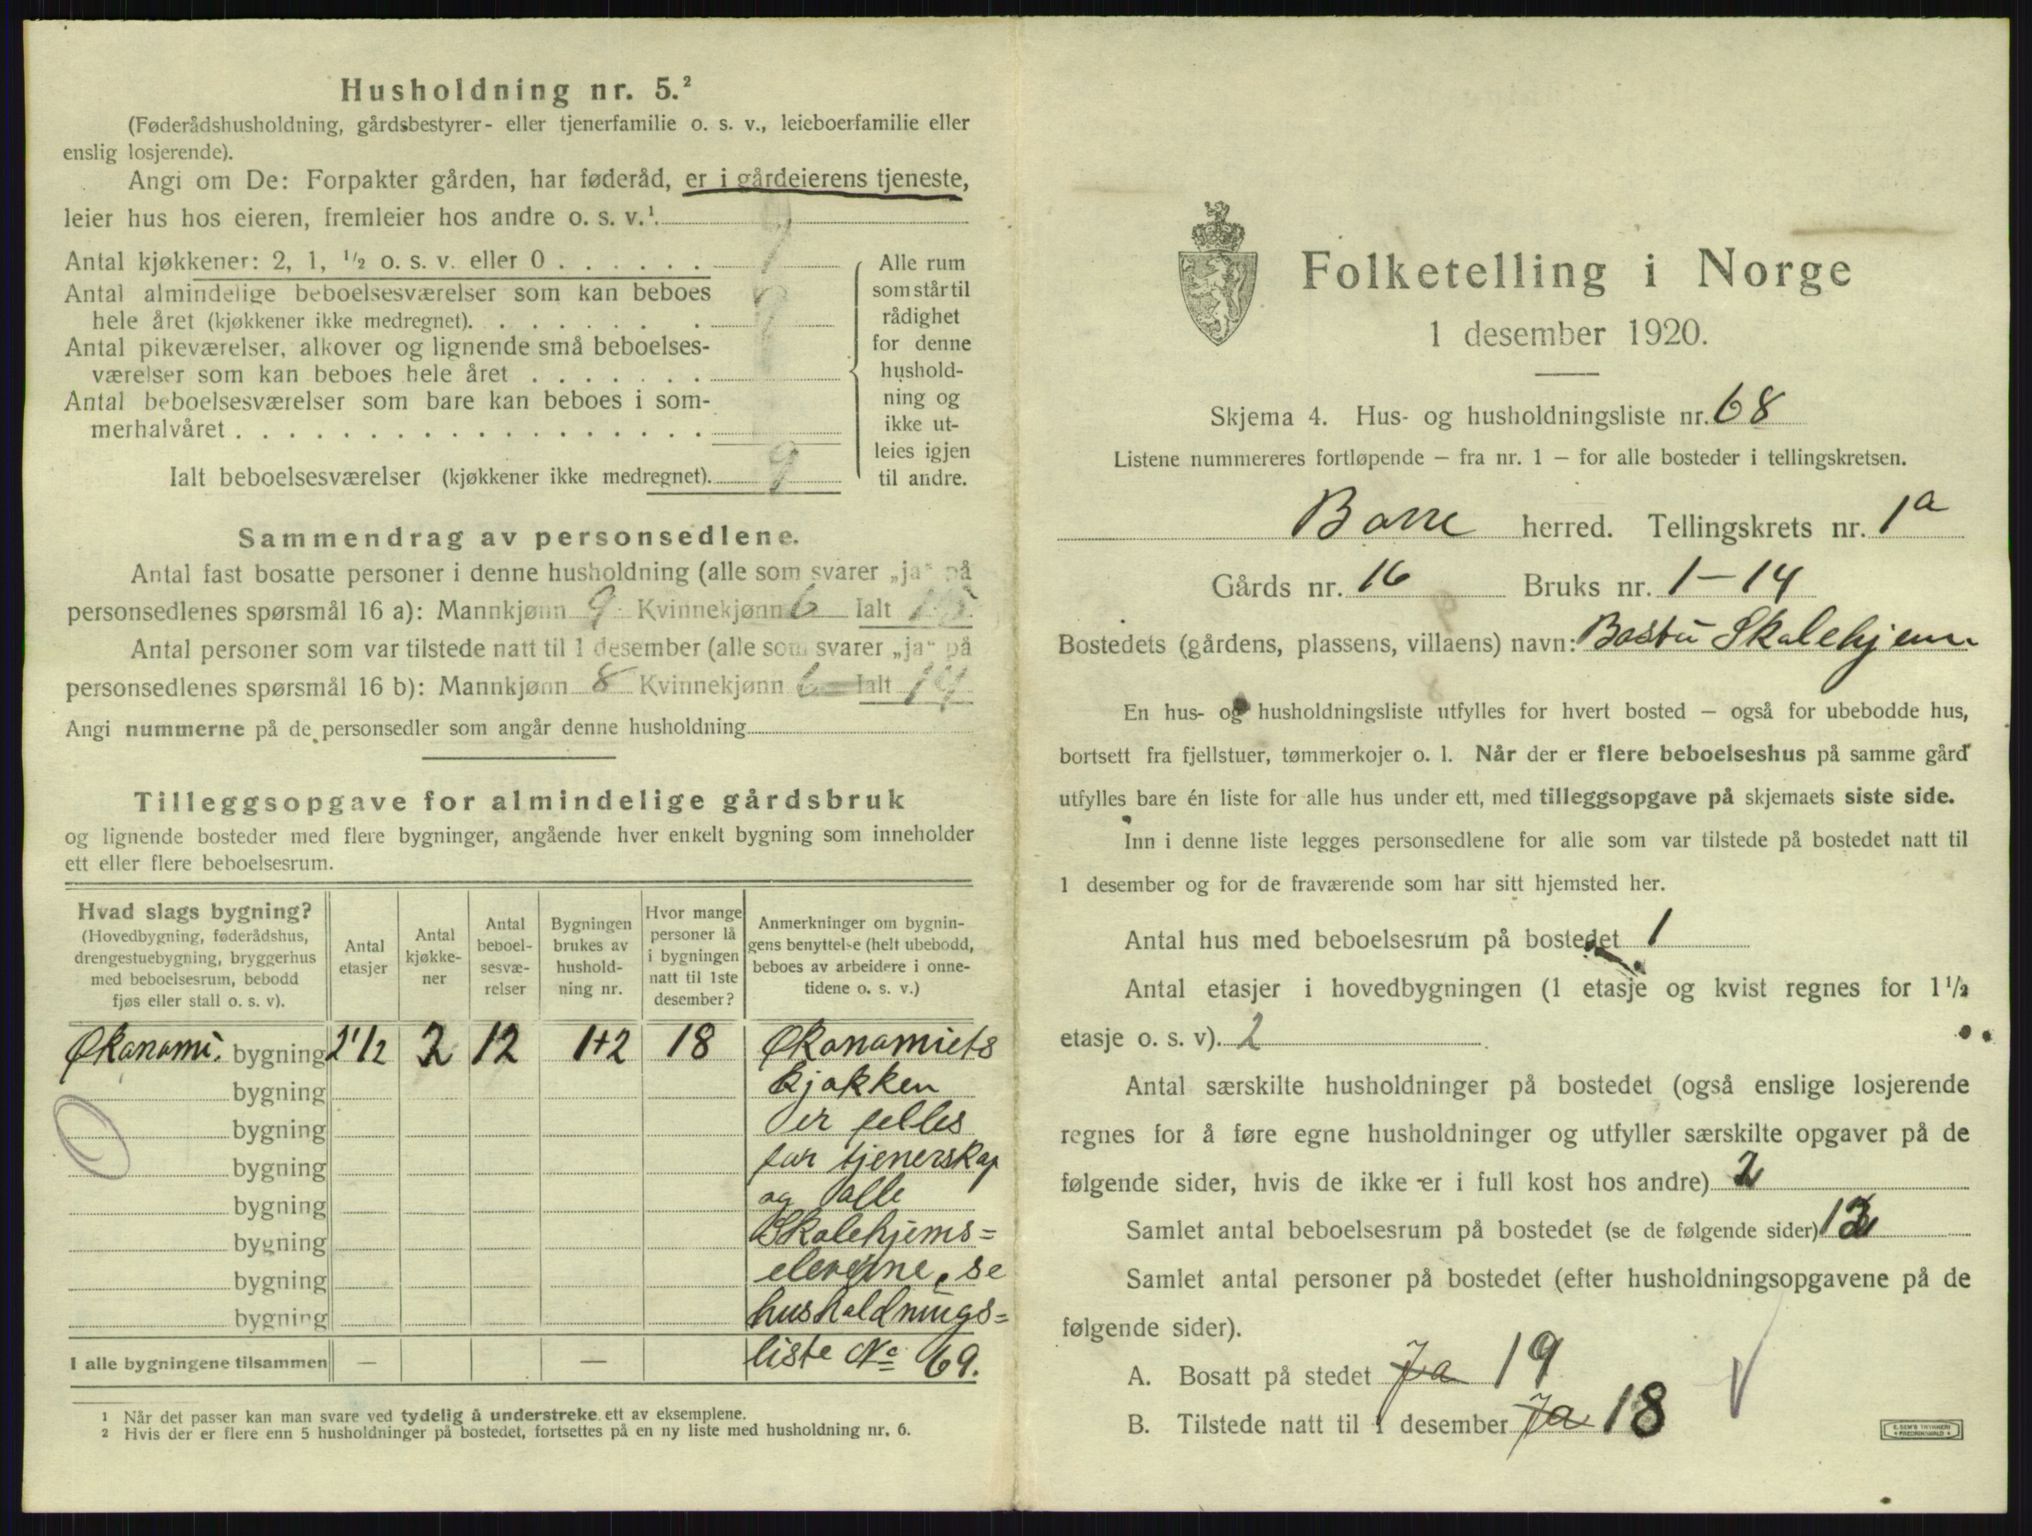 Husholdning nr. 5.²
(Føderådshusholdning, gårdsbestyrer- eller tjenerfamilie o. s. v., leieboerfamilie eller
enslig losjerende).
Angi om De: Forpakter gården, har føderåd, er i gårdeierens tjeneste,
leier hus hos eieren, fremleier hos andre o. s. v.¹
Antal kjøkkener: 2, 1, ½ o. s. v. eller 0 . . . . . .
Antal almindelige beboelsesværelser som kan beboes
hele året (kjøkkener ikke medregnet). . . . . . . . 9
Antal pikeværelser, alkover og lignende små beboelses-
værelser som kan beboes hele året . . . . . . .
Antal beboelsesværelser som bare kan beboes i som-
merhalvåret . . . . . . . . . . . . . . . . . .
Ialt beboelsesværelser (kjøkkener ikke medregnet). 9
Alle rum
som står til
rådighet
for denne
hushold-
ning og
ikke ut-
leies igjen
til andre.
Sammendrag av personsedlene.
Antal fast bosatte personer i denne husholdning (alle som svarer „ja“ på
personsedlenes spørsmål 16 a): Mannkjønn 9 Kvinnekjønn 6 Ialt 15
Antal personer som var tilstede natt til 1 desember (alle som svarer „ja“ på
personsedlenes spørsmål 16 b): Mannkjønn 8 Kvinnekjønn 6 Ialt 14
Angi nummerne på de personsedler som angår denne husholdning
Tilleggsopgave for almindelige gårdsbruk
og lignende bosteder med flere bygninger, angående hver enkelt bygning som inneholder
ett eller flere beboelsesrum.
Hvad slags bygning?
(Hovedbygning, føderådshus,
drengestuebygning, bryggerhus
med beboelsesrum, bebodd
fjøs eller stall o. s. v).
Antal
etasjer
Antal
kjøkke-
ner
Antal
beboel-
sesvæ-
relser
Bygningen
brukes av
hushold-
ning nr.
Hvor mange
personer lå
i bygningen
natt til 1ste
desember?
Anmerkninger om bygnin-
gens benyttelse (helt ubebodd,
beboes av arbeidere i onne-
tidene o. s. v.)
Økonomi. bygning 2 1/2 2 12 1+2 18 Økonomiets
bygning kjøkken
bygning er felles
bygning for tjenerskap
bygning og alle
bygning Skolehjems=
bygning elevene, se
bygning husholdnings=
I alle bygningene tilsammen — — liste No 69.
¹ Når det passer kan man svare ved tydelig å understreke ett av eksemplene.
² Hvis der er flere enn 5 husholdninger på bostedet, fortsettes på en ny liste med husholdning nr. 6.
Folketelling i Norge
1 desember 1920.
Skjema 4. Hus- og husholdningsliste nr. 68
Listene nummereres fortløpende – fra nr. 1 – for alle bosteder i tellingskretsen.
Borre herred. Tellingskrets nr. 1a
Gårds nr. 16 Bruks nr. 1-14
Bostedets (gårdens, plassens, villaens) navn: Bastø Skolehjem
En hus- og husholdningsliste utfylles for hvert bosted – også for ubebodde hus,
bortsett fra fjellstuer, tømmerkojer o. l. Når der er flere beboelseshus på samme gård
utfylles bare én liste for alle hus under ett, med tilleggsopgave på skjemaets siste side.
Inn i denne liste legges personsedlene for alle som var tilstede på bostedet natt til
1 desember og for de fraværende som har sitt hjemsted her.
Antal hus med beboelsesrum på bostedet 1
Antal etasjer i hovedbygningen (1 etasje og kvist regnes for 1½
etasje o. s. v). 2
Antal særskilte husholdninger på bostedet (også enslige losjerende
regnes for å føre egne husholdninger og utfyller særskilte opgaver på de
følgende sider, hvis de ikke er i full kost hos andre) 2
Samlet antal beboelsesrum på bostedet (se de følgende sider)
Samlet antal personer på bostedet (efter husholdningsopgavene på de
følgende sider).
A. Bosatt på stedet Ja 19
B. Tilstede natt til 1 desember Ja 18